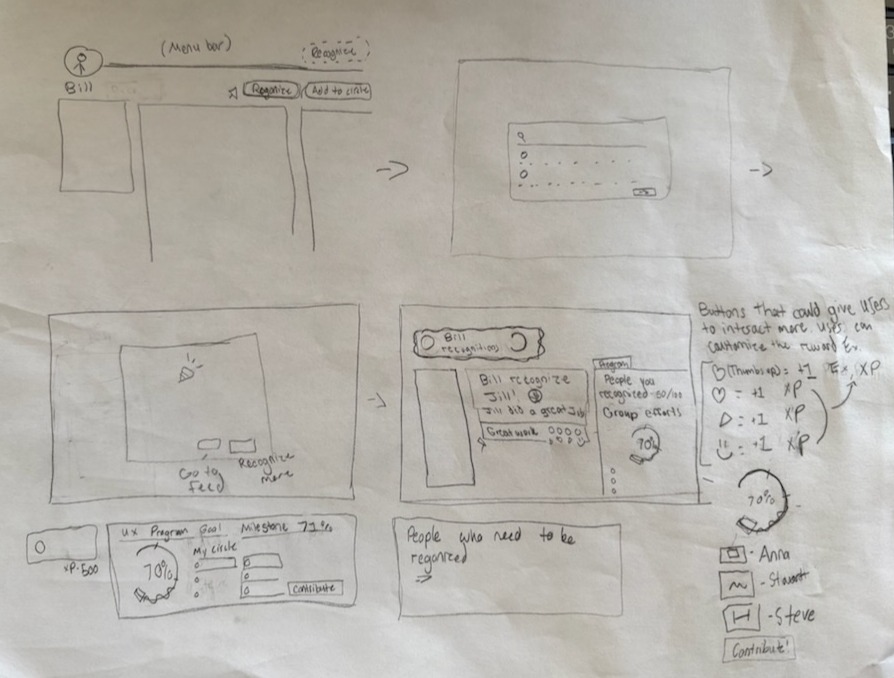 (Menu bar)
Recognize
Bill
Regonize
Add to circle
Go to
feed
Recognize
more
Bill
recognitions
Bill recognize
Jill!
Jill did a great job
Great work
Program
People you
recognized - 50/100
Group efforts
70%
Buttons that could give users
to interact more users can
customize the reward Ex.
(Thumbs up) = +1 Ex, XP
= +1 XP
= +1 XP
= +1 XP
70%
- Anna
- Stewart
- Steve
Contribute!
XP-500
UX Program Goal Milestone 71%
My circle
70%
Contribute
People who need to be
regonized